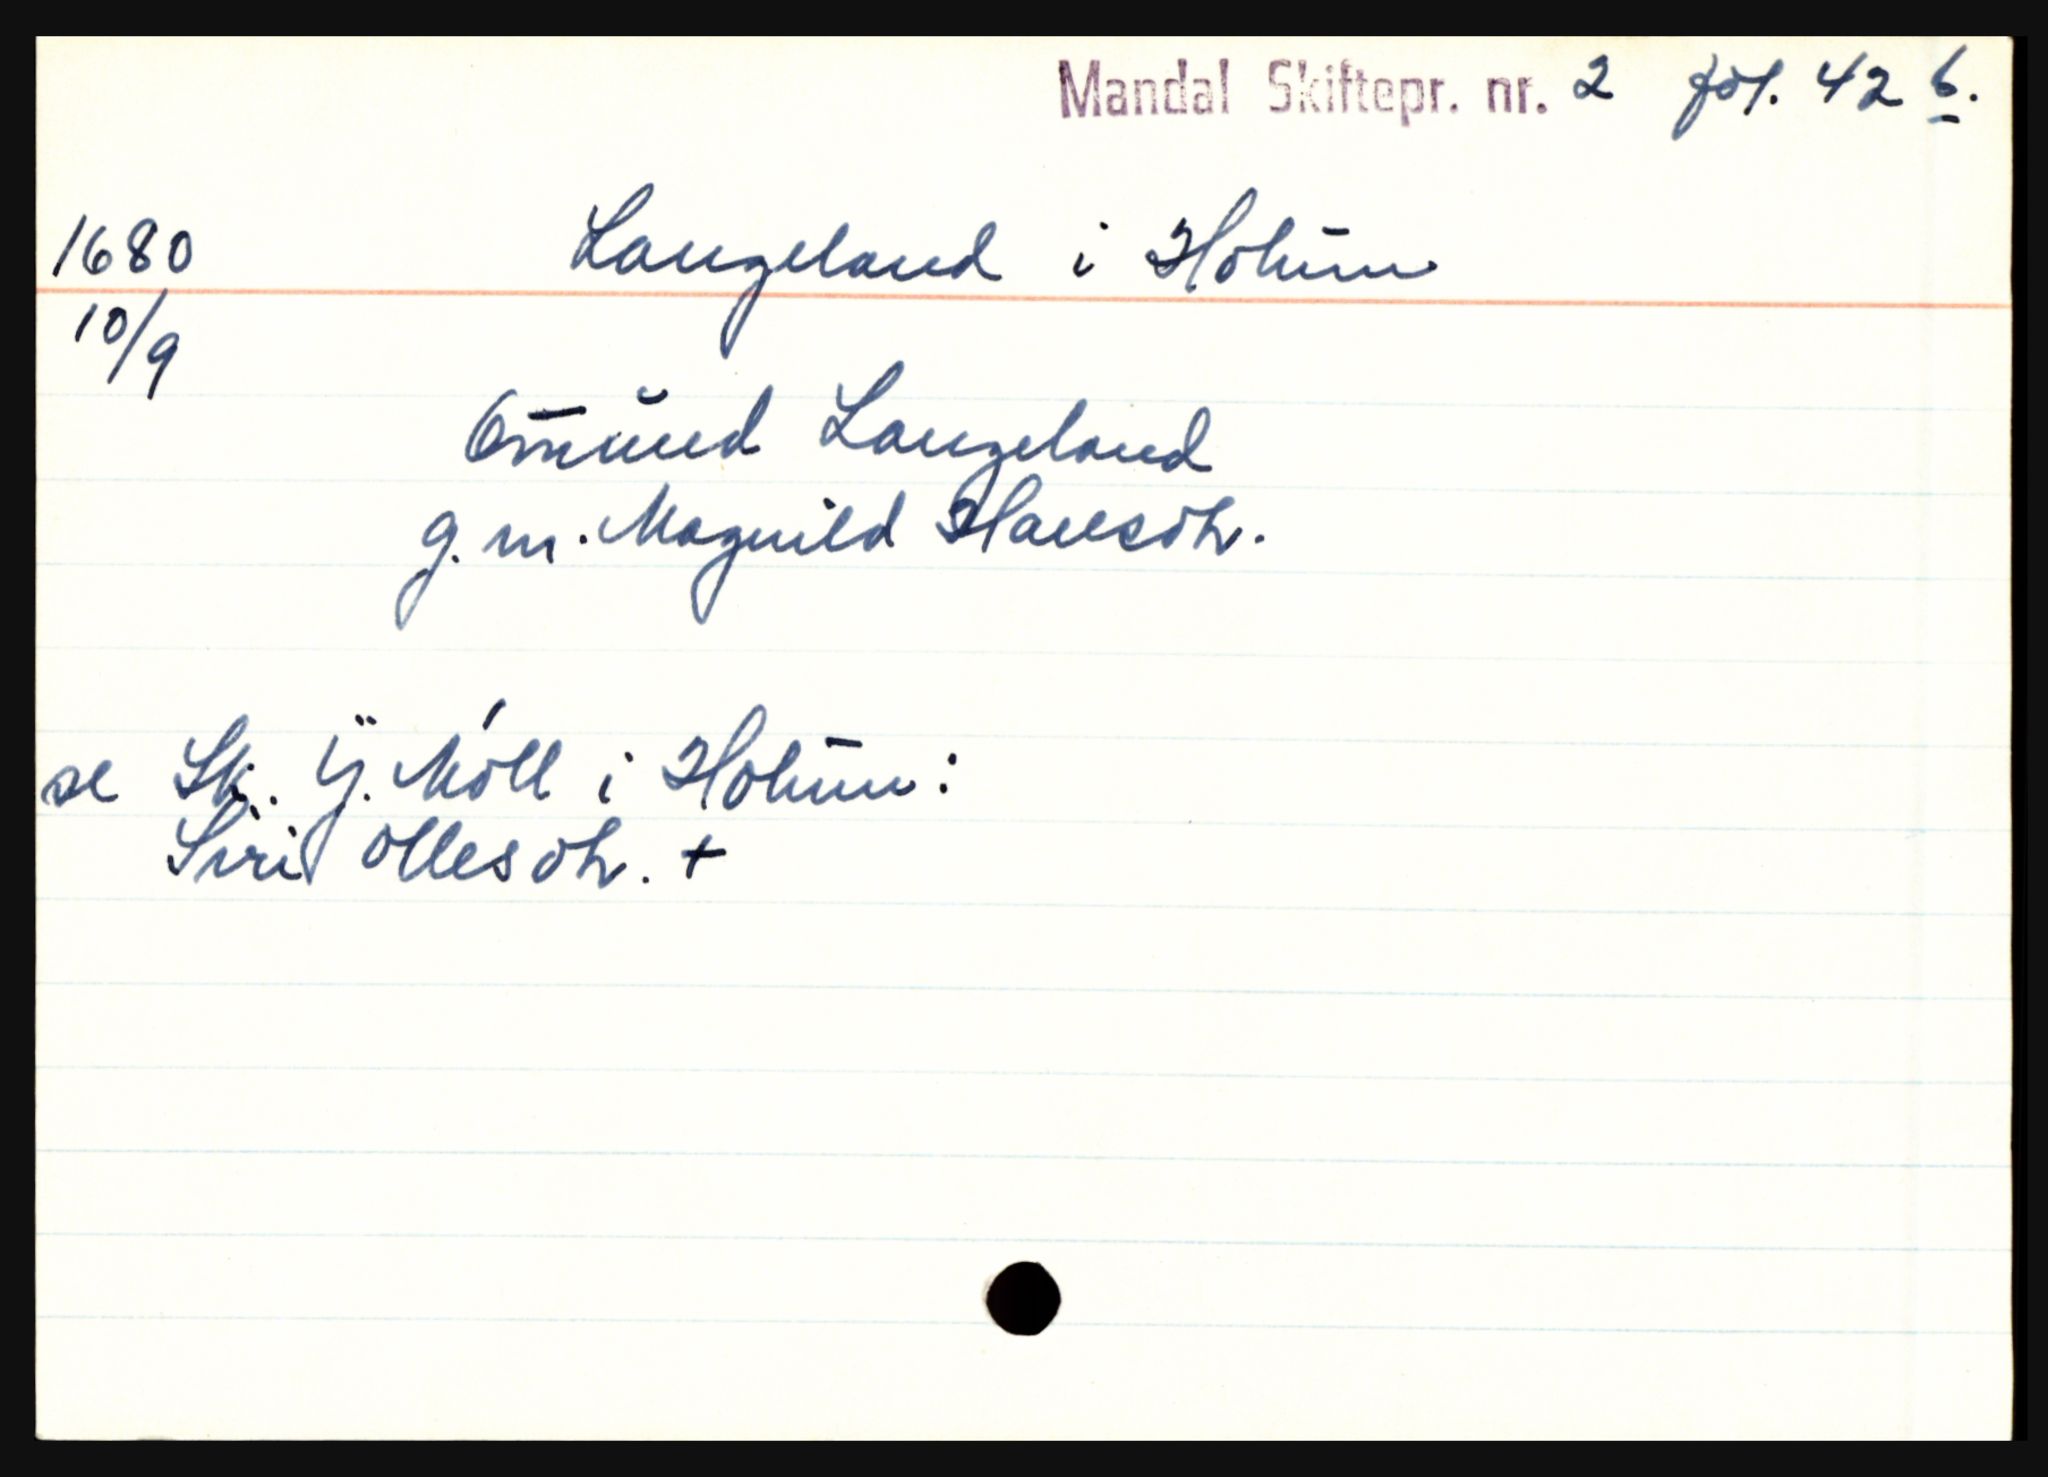 Mandal Skiftepr. nr. 2 fol. 42 b.
1680 Langeland i Holum
10/9
Omund Langeland
g. m. Magnild Hansdtr.
se Sk. Y. Möll i Holum:
Siri Ollesdtr. +